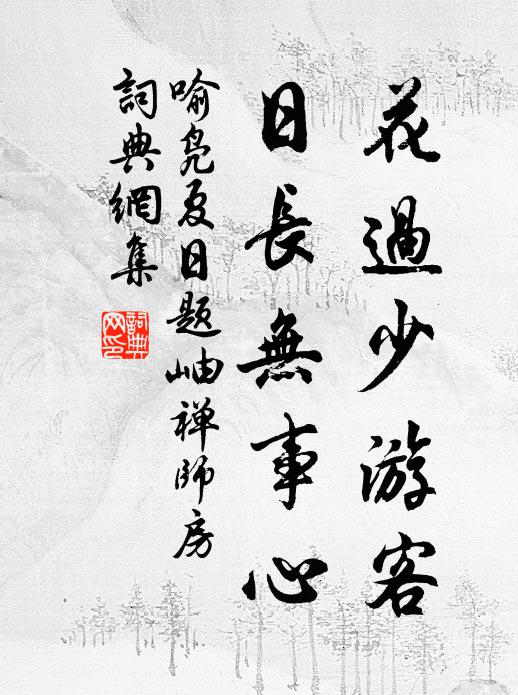 花過少游客
日長無事心
喻凫夏日题岫禅師房
詞典網集
詞典
网印